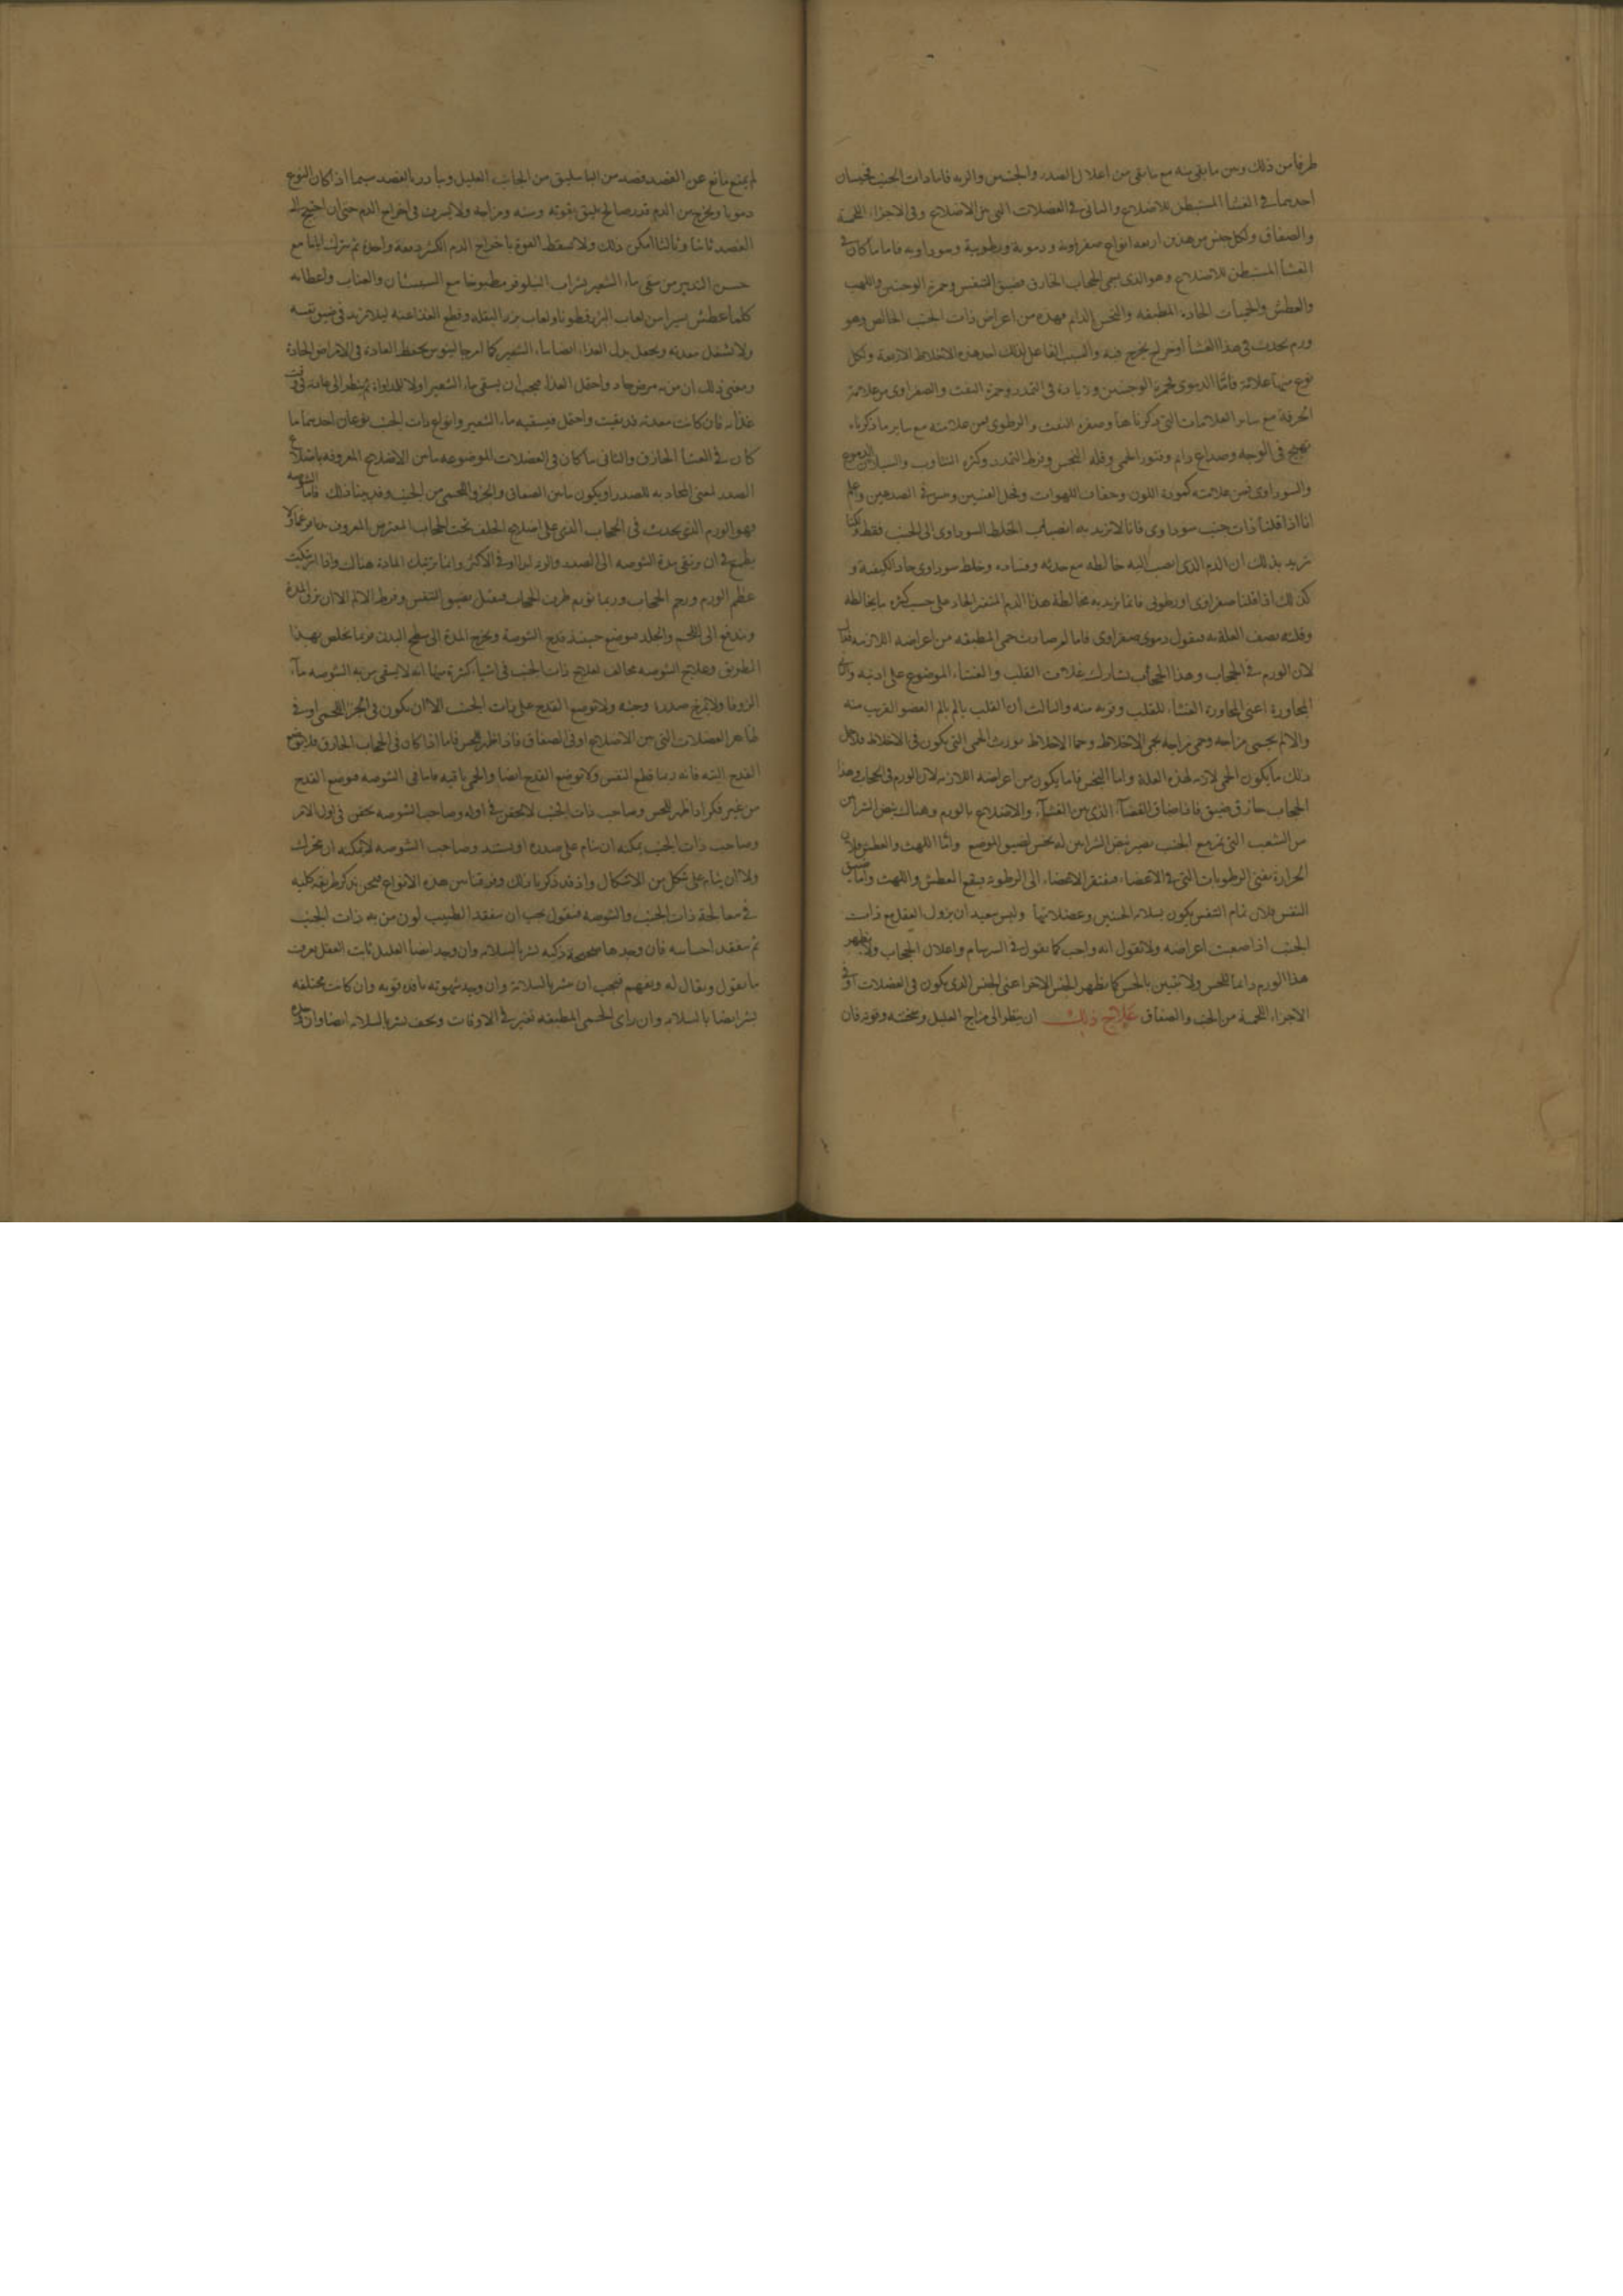 طرفا من ذلك وبين ما بقى منه مع ما بقى من اعلال الصدر والجنبين والريه فاما ذات الجنب فجنسان
احديهما فى الغشا المستبطن للاضلاع والثانى فى العضلات التى بين الاضلاع وفى الاجزاء اللحمية
والصفاق ولكل جنس من هذين اربعه انواع صفراويه ودمويه ورطوبية وسوداويه فاما ما كان فى
الغشا المستبطن للاضلاع وهو الذى يسمى الحجاب الخارق فضيق التنفس وحمرة الوجنتين واللهيب
والعطش والحميات الحاده المطبقه والنخس الدايم فهذه من اعراض ذات الجنب الخالص وهو
ورم يحدث فى هذا الغشا او خراج يخرج فيه والسبب الفاعل لذلك احد هذه الاخلاط الاربعة ولكل
نوع منها علامة فاما الدموى فحمرة الوجنتين وزيادة فى التمدد وحمرة النفث والصفراوى من علامته
الحرقة مع ساير العلامات التى ذكرناها وصفرة النفث والرطوبى فمن علامته مع ساير ما ذكرناه
تهيج فى الوجه وصداع دايم وفتور الحمى وقلة النخس وفرط التمدد وكثرة التثاوب والسيلان الدموع
والسوداوى فمن علامته كمودة اللون وجفاف اللهوات وقحل العينين وضربان فى الصدغين واعلم
انا اذا قلنا ذات جنب سوداوى فانا لا نريد به انصباب الخلط السوداوى الى الجنب فقط ولكنا
نريد بذلك ان الدم الذى انصب اليه خالطه مع حدته وفساده وخلط سوداوى حاد الكيفية و
كذلك اذا قلنا صفراوى او رطوبى فانما نريد به مخالطة هذا الدم المتغير الحاد على حسب كثرة ما يخالطه
وقلته نصف العلة به فنقول دموى صفراوى فاما لم صارت حمى المطبقه من اعراضه اللازمه فلانّ
لان الورم فى الحجاب وهذا الحجاب يشارك غلاف القلب والغشاء الموضوع على اذنيه والثانى
المجاورة اعنى المجاورة الغشاء للقلب وقربه منه والثالث ان القلب يالم بالم العضو القريب منه
والالم يحمى مزاجه وحمى مزاجه يحمى الاخلاط وحما الاخلاط يورث الحمى التى يكون فى الاخلاط فلاجل
ذلك ما يكون الحمى لازمه لهذه العلة واما النخس فاما يكون من اعراضه اللازمه لان الورم فى الحجاب وهذا
الحجاب خارق ضيق فاذا ضاق الفضآء الذى بين الغشآء والاضلاع بالورم وهناك نبض الشرايين
من الشعب التى تمر مع الجنب يصير نبض الشرايين له نخس لضيق الموضع واما اللهث والعطش فلان
الحرارة تفنى الرطوبات التى فى الاعضاء فتفتقر الاعضاء الى الرطوبه فيقع العطش واللهث واما ضيق
النفس فلان تمام التنفس يكون بسلامة الجنبين وعضلاتها وليس ببعيد ان يزول العقل مع ذات
الجنب اذا صعبت اعراضه ولا نقول انه واجب كما نقول فى السرسام واعلال الحجاب ولا يظهر
هذا الورم دايما للحس ولا يتبين بالحس كما يظهر الجنس الاخر اعنى الجنس الذى يكون فى العضلات او فى
الاجزاء اللحمية من الجنب والصفاق علاج ذلك ان ينظر الى مزاج العليل وسحنته وقوته فان
لم يمنع مانع عن الفصد فصد من الباسليق من الجانب العليل ويبادر بالفصد سيما اذا كان النوع
دمويا ويخرج من الدم قدر صالح يليق بقوته وسنه ومزاجه ولا يسرف فى اخراج الدم حتى ان احتيج الى
الفصد ثانيا وثالثا امكن ذلك ولا تسقط القوة باخراج الدم الكثير دفعة واحدة ثم يترك اياما مع
حسن التدبير من سقى ماء الشعير بشراب النيلوفر مطبوخا مع السبستان والعناب واعطائه
كلما عطش يسيرا من لعاب البزرقطونا ولعاب بزر البقله وقطع الغذا عنه ليلا يزيد فى ضيق نفسه
ولا تشغل معدته ويجعل بدل الغذاء ايضا ماء الشعير كما امر جالينوس بحفظ العادة فى الامراض الحادة
ومعنى ذلك ان من به مرض حاد واحتمل الغذا فيجب ان يسقى ماء الشعير اولا للمداواة ثم ينظر الى عادته فى وقت
غذائه فان كانت معدته قد بقيت واحتمل فيسقيه ماء الشعير وانواع ذات الجنب نوعان احديهما ما
كان فى الغشا الخارق والثانى ما كان فى العضلات الموضوعه ما بين الاضلاع المعروفه باضلاع
الصدر اعنى المحاذيه للصدر او يكون ما بين الصفاق والجزو اللحمى من الجنب وقد بينا ذلك فاما الشوصه
فهو الورم الذى يحدث فى الحجاب الذى على اضلاع الخلف تحت الحجاب المعترض المعروف
يطمع فى ان ترتقى مدة الشوصه الى الصدر والريه لمداواة فى الاكثر وانما ترتبك المادة هناك واذا ارتبكت
عظم الورم ورحم الحجاب وربما تورم طرف الحجاب فيقبل بضيق التنفس وفرط الالم الا ان ترق المدة
وتندفع الى اللحم والجلد فيوضع حينئذ قدح الشوصة ويخرج المدة الى سطح البدن فربما يخلص بهذا
الطريق وعلاج الشوصه مخالف لعلاج ذات الجنب فى اشياء كثيرة منها انه لا يسقى من به الشوصه مآء
الزوفا ولا يمرخ صدره وجنبه ولا توضع القدح على ذات الجنب الا ان يكون فى الجزو اللحمى او فى
ظاهر العضلات التى بين الاضلاع او فى الصفاق فاذا ظهر للحس فاما اذا كان فى الحجاب الخارق فلا يوضع
القدح البته فانه ربما قطع النفس ولا توضع القدح ايضا والحمى باقيه فاما فى الشوصه فيوضع القدح
من غير فكر اذا ظهر للحس وصاحب ذات الجنب لا يحقن فى اوله وصاحب الشوصه يحقن فى اول الامر
وصاحب ذات الجنب يمكنه ان ينام على صدره او يستند وصاحب الشوصه لا يمكنه ان يتحرك
ولا ان ينام على شكل من الاشكال واذ قد ذكرنا ذلك وفرقنا بين هذه الانواع فنحن نذكر طريقه كليه
فى معالجة ذات الجنب والشوصه فنقول يجب ان يتفقد الطبيب لون من به ذات الجنب
ثم يتفقد احساسه فان وجدها صحيحة ذكيه بشر بالسلامه وان وجد ايضا العليل ثابت العقل يعرف
ما يقول ويقال له ويفهم فيجب ان يبشر بالسلامة وان وجد شهوته باقيه قويه وان كانت مختلفه
بشر ايضا بالسلامه وان راى الحمى المطبقه تفتر فى الاوقات وتخف بشر بالسلامه ايضا وان